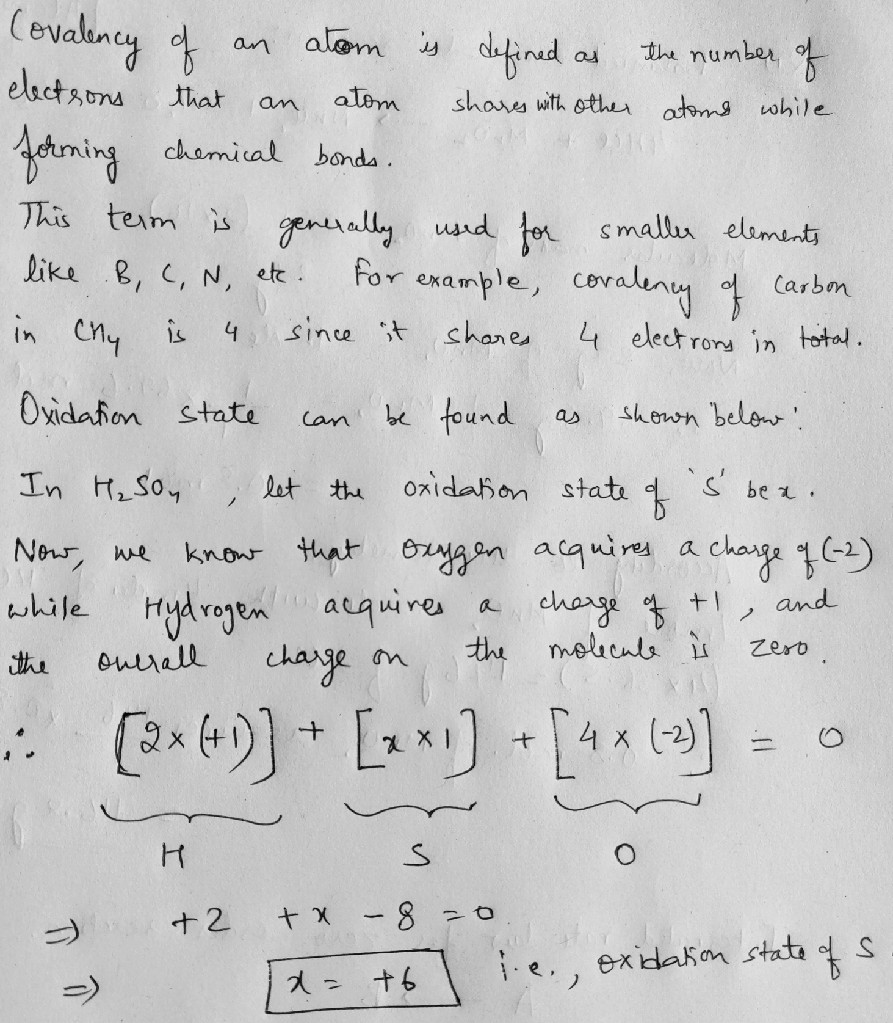 Covalency of an atom is defined as the number of
electrons that an atom shares with other atoms while
forming chemical bonds.
This term is generally used for smaller elements
like B, C, N, etc. For example, covalency of carbon
in CH₄ is 4 since it shares 4 electrons in total.
Oxidation state can be found as shown below:
In H₂SO₄, let the oxidation state of 'S' be x.
Now, we know that oxygen acquires a charge of (-2)
while Hydrogen acquires a charge of +1, and
the overall charge on the molecule is zero.
∴ [2×(+1)] + [x×1] + [4×(-2)] = 0
H S O
⇒ +2 +x -8 = 0
⇒ x = +6 i.e., oxidation state of S